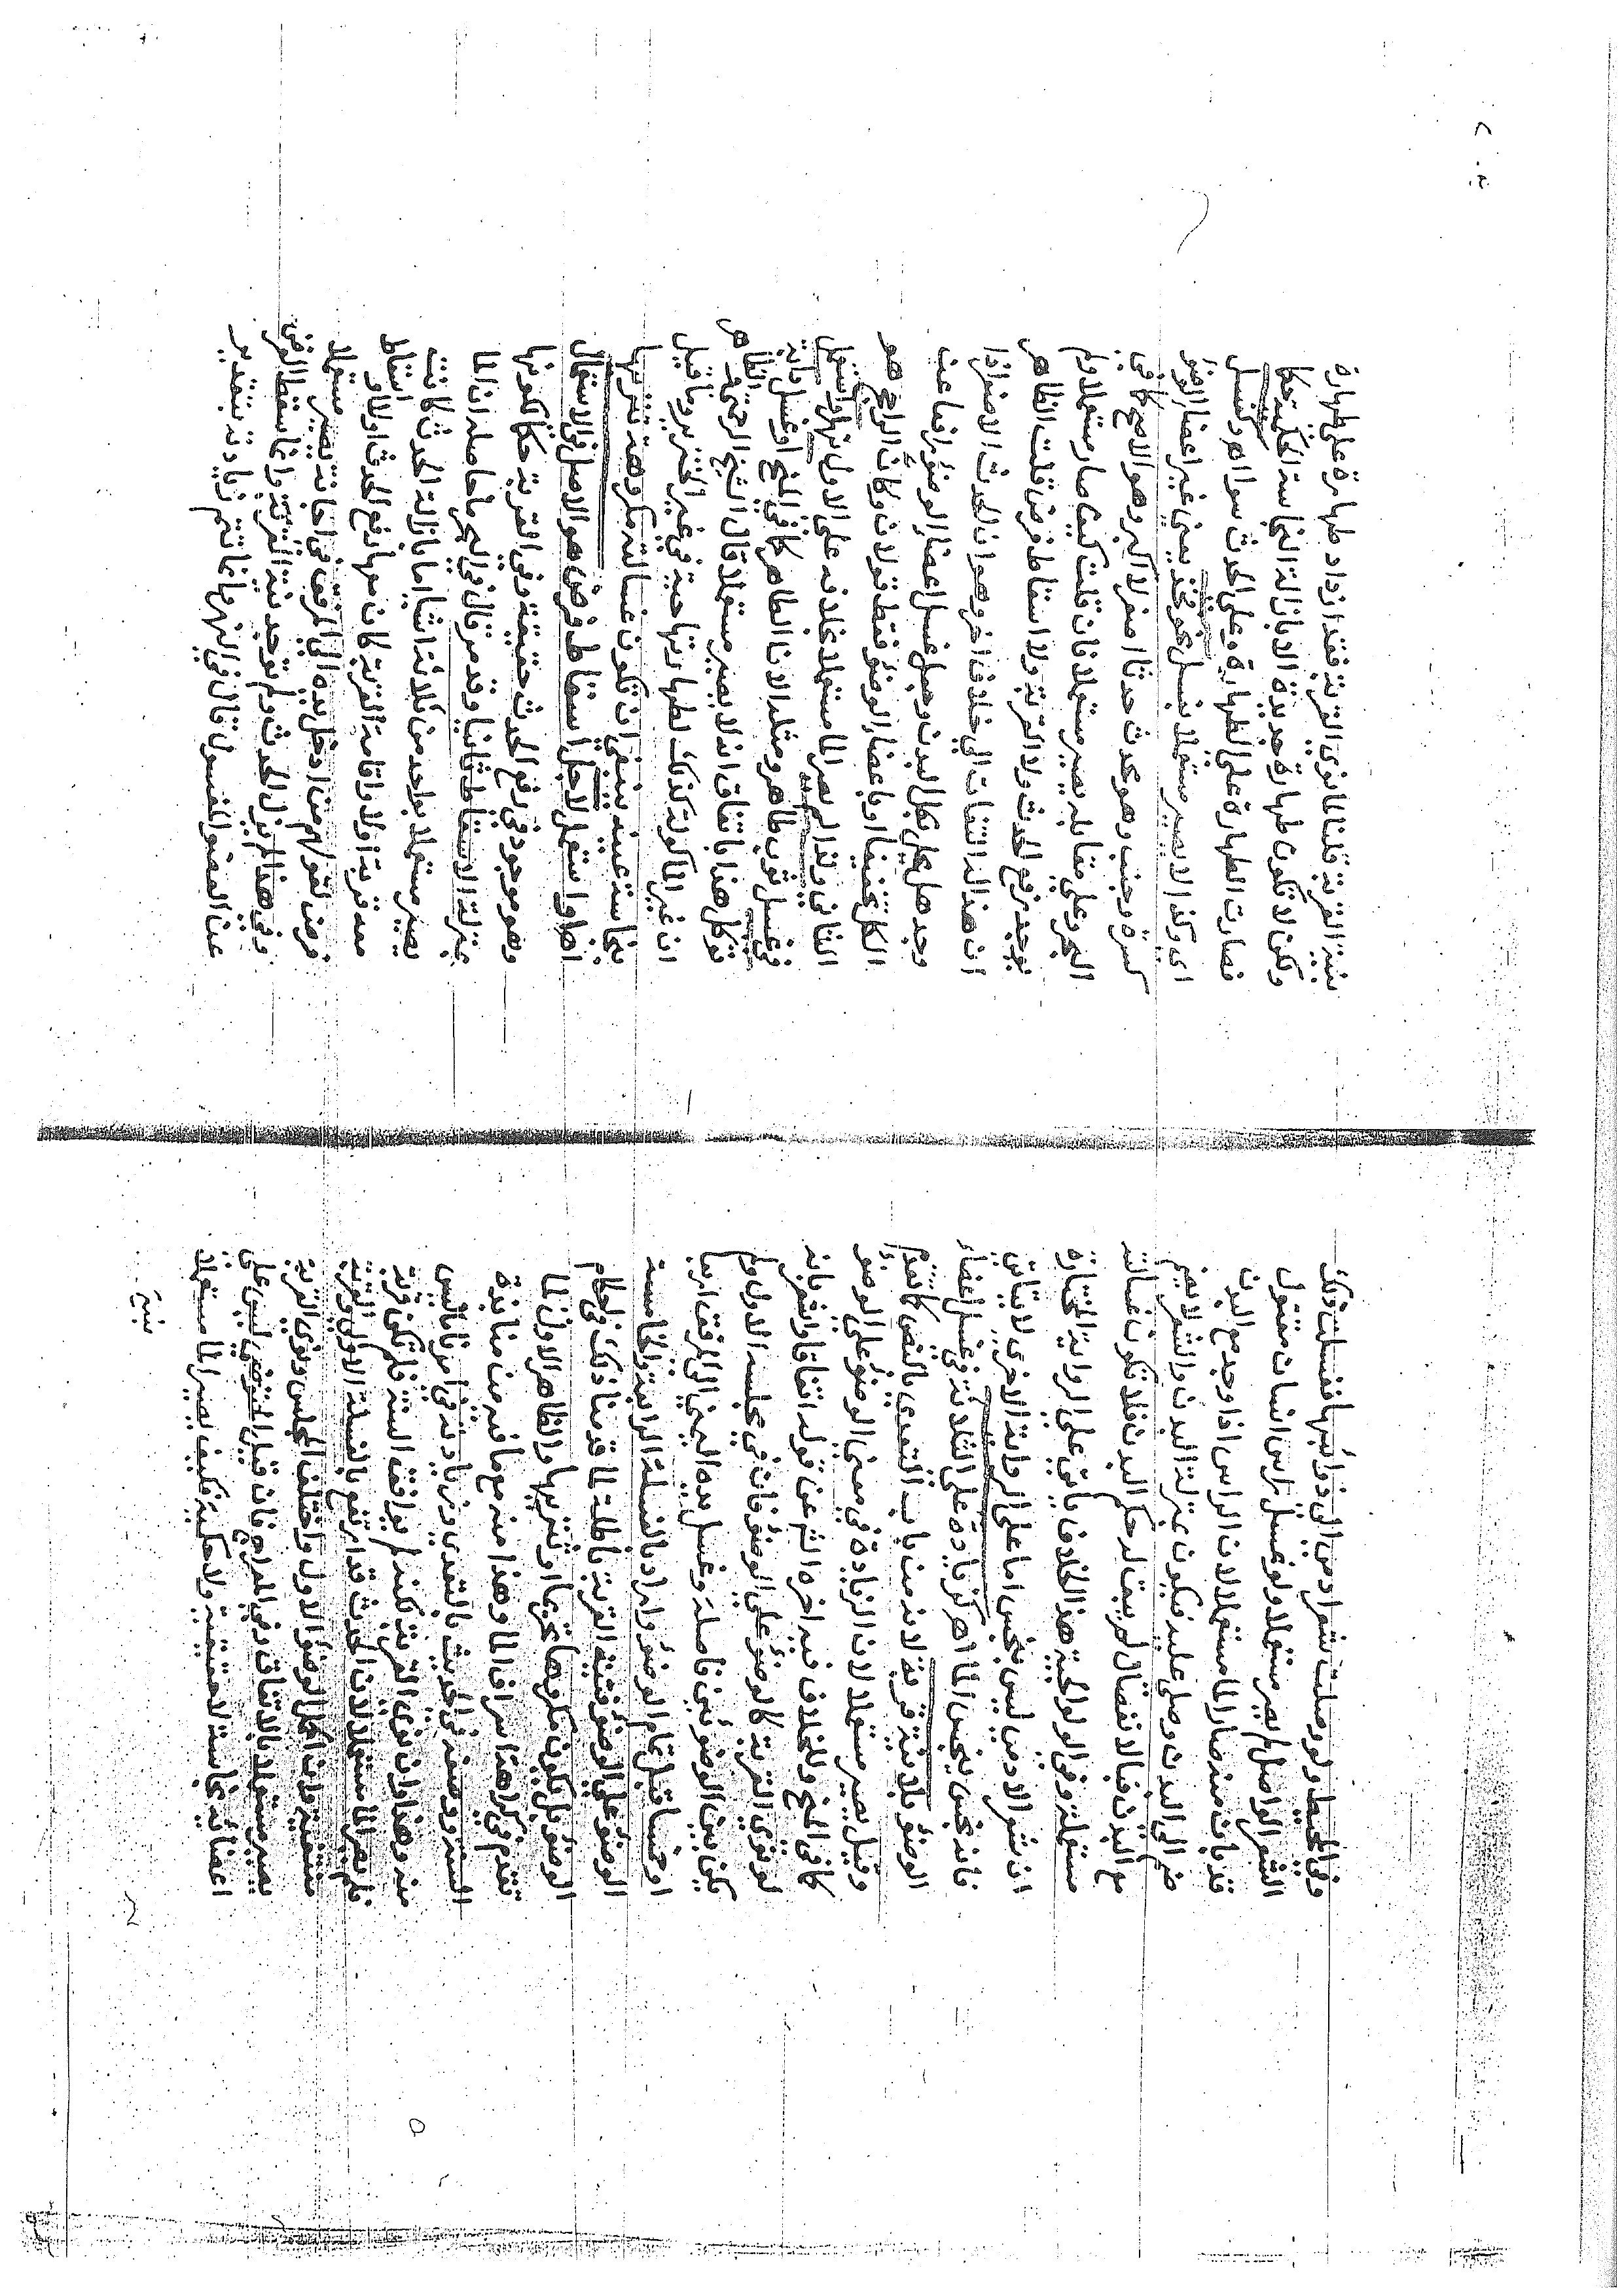 وفي المحيط ولو وصلت شعر ادمي الى ذوائبها فغسلت ذلك
الشعر الواصل لم يصر مستعملا ولو غسل رأس انسان مقتول
قد بان منه صار الماء مستعملا لان الراس اذا وجد مع البدن
ضم الى البدن وصلى عليه فيكون بمنزلة البدن والشعر لا يضم
مع البدن فبالانفصال لم يبق له حكم البدن فلا تكون غسالته
مستعملة وفي الولوالجية هذا الخلاف يأتي على الرواية المختارة
ان شعر الادمي ليس بنجس اما على الرواية الاخرى لا يتأتى
فانه نجس ينجس الماء اهـ كزيادة على الثلاثة في غسل اعضاء
الوضوء بلا نية قربة لانه من باب التعدي بالنص كما تقدم
وقيل يصير مستعملا لان الزيادة في معنى الوضوء على الوضوء
كما في المنح وللخلاف فيه اخره عن قوله اتفاقا واشعر بانه
لو نوى القربة كالوضوء على الوضوء فان في مجلسه الاول ولم
يكن بين الوضوئين فاصلة وغسل يده اليمنى الى المرفق اربعا
او خمسا قبل تمام الوضوء واراد بالغسلة الرابعة والخامسة
الوضوء على الوضوء فنية القربة باطلة لما قدمنا ذلك في احكام
الوضوء بل يكون مكروها تحريما او تنزيها والظاهر الاول لما
تقدم في كراهة اسراف الماء وهذا منه مع ما فيه من منابذة
السنة ووصفه في الحديث بالتعدي وزيادته في امرنا ما ليس
منه وهذا وان نوى القربة لكنه لم يوافق السنة فلم تكن قربة
فلم يصر الماء مستعملا لان الحدث قد ارتفع بالغسلة الاولى والقربة
منتفية وان اكمل الوضوء الاول واختلف المجلس ونوى القربة
يصير مستعملا بالاتفاق وفي المعراج فان قيل المتوضئ ليس على
اعضائه نجاسة لا حقيقية ولا حكمية فكيف يصير الماء مستعملا
بنية
بنية القربة قلنا لما نوى القربة فقد ازداد طهارة على طهارة
ولكن لا تكون طهارة جديدة الا بازالة النجاسة الحكمية حكما
فصارت الطهارة على الطهارة وعلى الحدث سواء اهـ وكغسل
اي وكذا لا يصير مستعملا بغسل نحو فخذ يعني غير اعضاء الوضوء
كسرة وجنب وهو محدث حدثا اصغر لا اكبر وهو الاصح كما في
البحر وعلى مقابله يصير مستعملا فان قلت كيف صار مستعملا ولم
يوجد رفع الحدث ولا القربة ولا اسقاط فرض قلت الظاهر
ان هذا له التفات الى خلاف اخر وهو ان الحدث الاصغر اذا
وجد هل يحل بكل البدن وجعل غسل اعضاء الوضوء رافعا عن
الكل تخفيفا او باعضاء الوضوء فقط قولان وكان الراجح هو
الثاني ولذا لم يصر الماء مستعملا بخلافه على الاول نهر او استعمل
في غسل ثوب طاهر ومثله الاناء الطاهر كما في المنح او غسل دابة
تؤكل هذا باتفاق انه لا يصير مستعملا قال الشيخ الرحمتي والظاهر
ان غير المأكولة كذلك لطهارتها حية في غير الخنزير وما قيل
بنجاسة عينه ينبغي ان تكون غسالته مكروهة تنزيها
اهـ او استعمل لاجل اسقاط فرض هو الاصل في الاستعمال
وهو موجود في رفع الحدث حقيقة وفي القربة حكما لكونها
بمنزلة الاسقاط ثانيا وقد مر قال في البحر ما حاصله ان الماء
يصير مستعملا بواحد من ثلاثة اشياء اما بازالة الحدث كانت
معه قربة اولا او اقامة القربة كان معها رفع الحدث اولا او اسقاط
فرض لقولهم من ادخل يده الى المرفق في اجانة يصير مستعملا
وفي هذا لم يزل الحدث ولم توجد نية القربة وانما سقط الفرض
عن العضو المغسول قال في النهر وانما تتم زيادته بتقدير